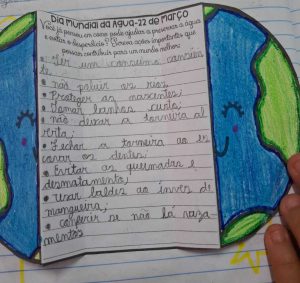 Dia Mundial da Água-22 de Março
Você já pensou em como pode ajudar a preservar a água
e evitar o desperdício? Escreva ações importantes que
possam contribuir para um mundo melhor:
• Ter um consumo conscien
te
• não poluir os rios
• Proteger as nascentes;
• Tomar banhos curto;
• não deixar a torneira a
berta;
• Fechar a torneira ao es
covar os dentes;
• Evitar as queimadas e
desmatamento;
• usar baldes ao invés de
mangueira;
• conferir se não há vaza-
mentos